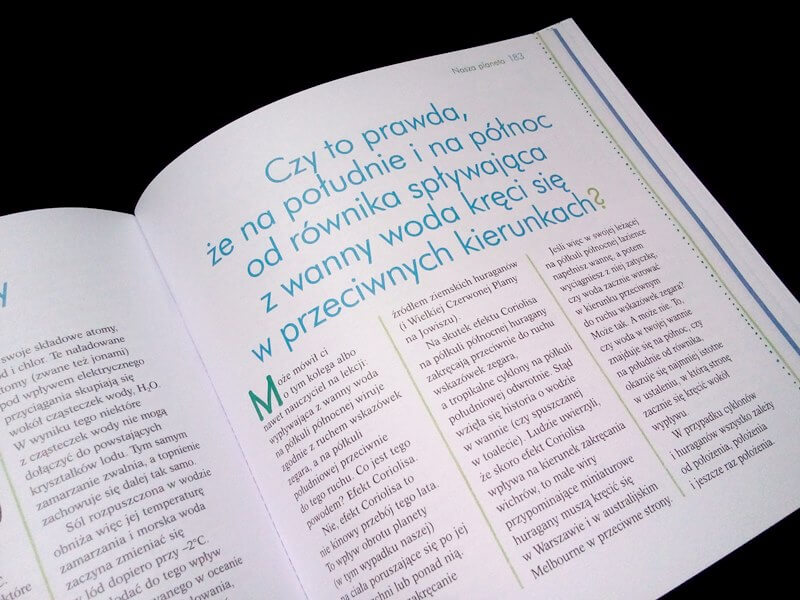 y
swoje składowe atomy,
d i chlor. Te naładowane
tomy (zwane też jonami)
pod wpływem elektrycznego
przyciągania skupiają się
wokół cząsteczek wody, H₂O.
W wyniku tego niektóre
z cząsteczek wody nie mogą
dołączyć do powstających
kryształków lodu. Tym samym
zamarzanie zwalnia, a topnienie
zachowuje się dalej tak samo.
Sól rozpuszczona w wodzie
obniża więc jej temperaturę
zamarzania i morska woda
zaczyna zmieniać się
w lód dopiero przy –2°C.
do tego wpływ
w oceanie
Nasza planeta 183
Czy to prawda,
że na południe i na północ
od równika spływająca
z wanny woda kręci się
w przeciwnych kierunkach?
Może mówił ci
o tym kolega albo
nawet nauczyciel na lekcji:
wypływająca z wanny woda
na półkuli północnej wiruje
zgodnie z ruchem wskazówek
zegara, a na półkuli
południowej przeciwnie
do tego ruchu. Co jest tego
powodem? Efekt Coriolisa.
Nie, efekt Coriolisa to
nie kinowy przebój tego lata.
To wpływ obrotu planety
(w tym wypadku naszej)
na ciała poruszające się po jej
chni lub ponad nią.
zakręcanie
źródłem ziemskich huraganów
(i Wielkiej Czerwonej Plamy
na Jowiszu).
Na skutek efektu Coriolisa
na półkuli północnej huragany
zakręcają przeciwnie do ruchu
wskazówek zegara,
a tropikalne cyklony na półkuli
południowej odwrotnie. Stąd
wzięła się historia o wodzie
w wannie (czy spuszczanej
w toalecie). Ludzie uwierzyli,
że skoro efekt Coriolisa
wpływa na kierunek zakręcania
wichrów, to małe wiry
przypominające miniaturowe
huragany muszą kręcić się
w Warszawie i w australijskim
Melbourne w przeciwne strony.
Jeśli więc w swojej leżącej
na półkuli północnej łazience
napełnisz wannę, a potem
wyciągniesz z niej zatyczkę,
czy woda zacznie wirować
w kierunku przeciwnym
do ruchu wskazówek zegara?
Może tak. A może nie. To,
czy woda w twojej wannie
znajduje się na północ, czy
na południe od równika,
okazuje się najmniej istotne
w ustaleniu, w którą stronę
zacznie się kręcić wokół
wypływu.
W przypadku cyklonów
i huraganów wszystko zależy
od położenia, położenia
i jeszcze raz położenia.